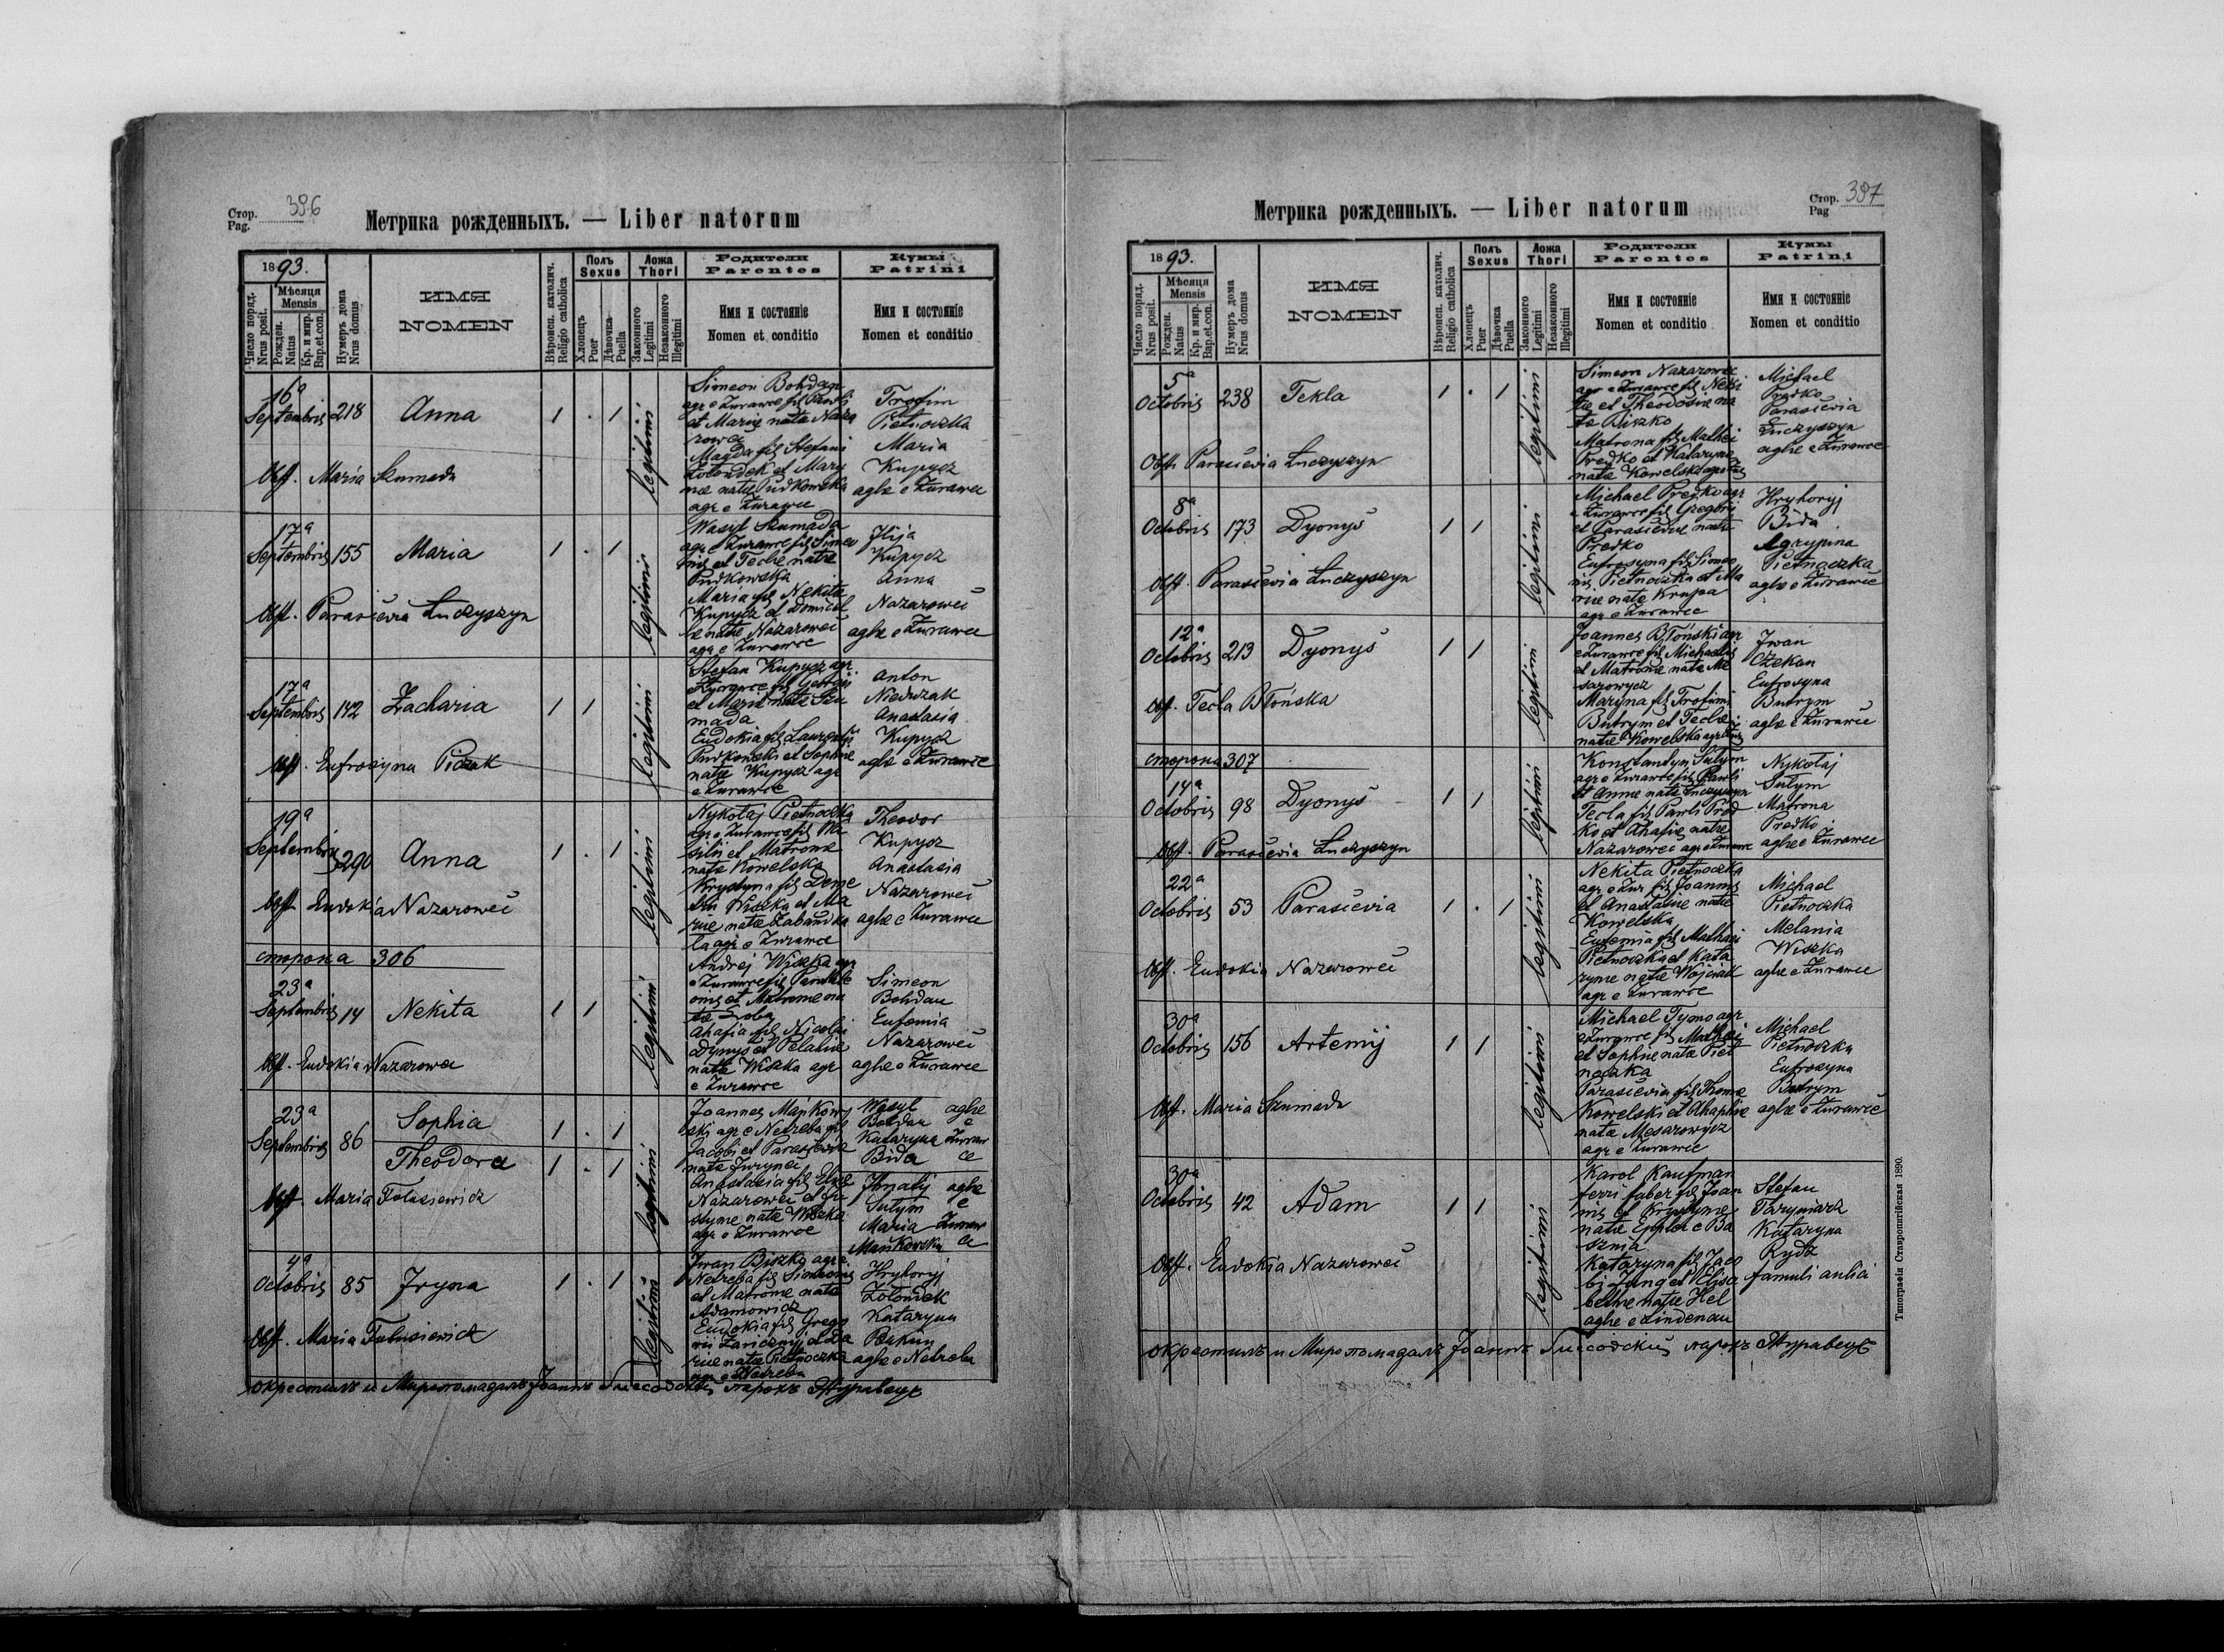 Стор. 396
Pag.
Метрика рожденныхъ. — Liber natorum
1893.
Число поряд. Nrus posit.
Мѣсяця Mensis
Рожден. Natus
Кр. и мир. Bap. et. con.
Нумеръ дома Nrus domus
ИМЯ
NOMEN
Вѣроисп. католич. Religio catholica
Полъ Sexus
Хлопецъ Puer
Дѣвочка Puella
Ложа Thori
Законного Legitimi
Незаконного Illegitimi
Родители
Parentes
Имя и состоянїе
Nomen et conditio
Кумы
Patrini
Имя и состоянїе
Nomen et conditio
16a Septembris 218 Anna 1 . 1 legitimi
Simeon Bohdan
agr e Żurawce fil Pawli
et Marie nata Naza
rowec
Magda fil Stefani
Żołondek et Mary
nae natae Pudkowska
agr e Żurawce
Trofim
Pietnoczka
Maria
Kupycz
aglae e Żurawce
Obst. Maria Szumada
17a Septembris 155 Maria 1 . 1 legitimi
Wasyl Szumada
agr e Żurawce fil Simeo
nis et Teclae natae
Pudkowska
Maria fil Nekitae
Kupycz et Domicel
lae natae Nazarowec
agr e Żurawce
Ilija
Kupycz
Anna
Nazarowec
aglae e Żurawce
Obst. Parasievia Łuczyszyn
17a Septembris 142 Zacharia 1 1 legitimi
Stefan Kupycz agr
e Żurawce fil Georgii
et Mariae natae Szu
mada
Eudokia fil Laurentii
Pudkowski et Sophiae
natae Kupycz agr
e Żurawce
Anton
Niedużak
Anastasia
Kupycz
aglae e Żurawce
Obst. Eufrozyna
19a Septembris 290 Anna 1 . 1 legitimi
Nykołaj Pietnoczka
agr e Żurawce fil Wa
silii et Matronae
natae Kowelska
Krystyna fil Deme
trii Wiszka et Ma
riae natae
agr e Żurawce
Theodor
Kupycz
Anastasia
Nazarowec
aglae e Żurawce
Obst Eudokia Nazarowec
сторона 306
23a Septembris 14 Nekita 1 1 legitimi
Andrej Wiszka agr
e Żurawce fil
et Matronae na
tae
Ahafia fil Nicolai
Dynys et Pelahiae
natae Wiszka agr
e Żurawce
Simeon
Bohdan
Eufemia
Nazarowec
aglae e Żurawce
Obst. Eudokia Nazarowec
23a Septembris 86
Sophia 1 . 1
Theodora 1 . 1
legitimi
Joannes Mańkow
ski agr e Netreba fil
Jacobi et Parasieviae
natae Juryneć
Anastasia fil Eliae
Nazarowec et Ju
stynae natae Wiszka
agr e Żurawce
Wasyl
Bohdan
Kataryna
Bida
aglae e Żurawce
Ihnatij
Sutym
Maria
Mańkowska
aglae e Żurawce
Obst. Maria Tutusiewicz
4a Octobris 85 Iryna 1 . 1 legitimi
Iwan Biszko agr e
Netreba fil Simeonis
et Matronae natae
Adamowicz
Eudokia fil Grego
rii
riae natae Pietnoczka
agr e Netreba
Hryhoryj
Żołondek
Kataryna
aglae e Netreba
Obst. Maria Tutusiewicz
окрестилъ и Миропомазалъ Іоаннъ парохъ Журавецъ
Стор. 397
Pag
Метрика рожденныхъ. — Liber natorum
1893.
Число поряд. Nrus posit.
Мѣсяця Mensis
Рожден. Natus
Кр. и мир. Bap. et. con.
Нумеръ дома Nrus domus
ИМЯ
NOMEN
Вѣроисп. католич. Religio catholica
Полъ Sexus
Хлопецъ Puer
Дѣвочка Puella
Ложа Thori
Законного Legitimi
Незаконного Illegitimi
Родители
Parentes
Имя и состоянїе
Nomen et conditio
Кумы
Patrini
Имя и состоянїе
Nomen et conditio
5a Octobris 238 Tekla 1 . 1 legitimi
Simeon Nazarowec
agr e Żurawce fil Neki
tae et Theodosiae na
tae Biszko
Matrona fil Mathei
Predko et Katarynae
natae Kowelska
Michael
Predko
Parasievia
Łuczyszyn
aglae e Żurawce
Obst. Parasievia Łuczyszyn
8a Octobris 173 Dyonyś 1 1 legitimi
Michael Predko agr
e Żurawce fil Gregorii
et Parasieviae natae
Predko
Eufrosyna fil Simeo
nis Pietnoczka et Ma
riae natae Krupa
agr e Żurawce
Hryhoryj
Bida
Agrypina
Pietnoczka
aglae e Żurawce
Obst. Parasievia Łuczyszyn
12a Octobris 213 Dyonyś 1 1 legitimi
Joannes Błoński agr
e Żurawce fil Michaelis
et Matronae natae Me
sarowycz
Maryna fil Trofimi
Butrym et Teclae
natae Kowelska
Iwan
Czekan
Eufrosyna
Butrym
aglae e Żurawce
Obst. Tecla Błońska
сторона 307
14a Octobris 98 Dyonyś 1 1 legitimi
Konstantyn Sutym
agr e Żurawce fil Pawli
et Annae natae Łuczyszyn
Tecla fil Pawli Pred
ko et Ahafiae natae
Nazarowec agr e Żurawce
Nykołaj
Sutym
Matrona
Predko
aglae e Żurawce
Obst. Parasievia Łuczyszyn
22a Octobris 53 Parasievia 1 . 1 legitimi
Nekita Pietnoczka
agr e Żur fil Joannis
et Anastasiae natae
Kowelska
Eufemia fil Mathaei
Pietnoczka et Kata
rynae natae Wojciak
agr e Żurawce
Michael
Pietnoczka
Melania
Wiszka
aglae e Żurawce
Obst. Eudokia Nazarowec
30a Octobris 156 Artemij 1 1 legitimi
Michael Tymo agr
e Żurawce fil Mathaei
et Sophiae natae Piet
noczka
Parasievia fil Thomae
Kowelski et Ahaphiae
natae Mesarowycz
agr e Żurawce
Michael
Pietnoczka
Eufrozyna
Butrym
aglae e Żurawce
Obst. Maria Szumada
30a Octobris 42 Adam 1 1 legitimi
Karol Kaufman
ferri faber fil Joan
nis et Krystynae
natae Eppler e Ba
sznia
Kataryna fil Jaco
bi Jung et Elisa
bethae natae Hel
aglae e Lindenau
Stefan
Kataryna
Rydz
famuli aulici
Obst. Eudokia Nazarowec
окрестилъ и Миропомазалъ Іоаннъ парохъ Журавецъ
Типографія Ставропигійская 1890.